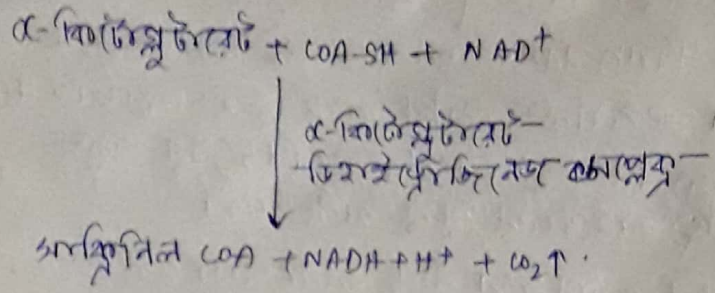 α-কিটোগ্লুটারেট + COA-SH + NAD⁺
α-কিটোগ্লুটারেট-
ডিহাইড্রোজিনেজ কমপ্লেক্স
সাক্সিনিল COA + NADH + H⁺ + CO₂↑.